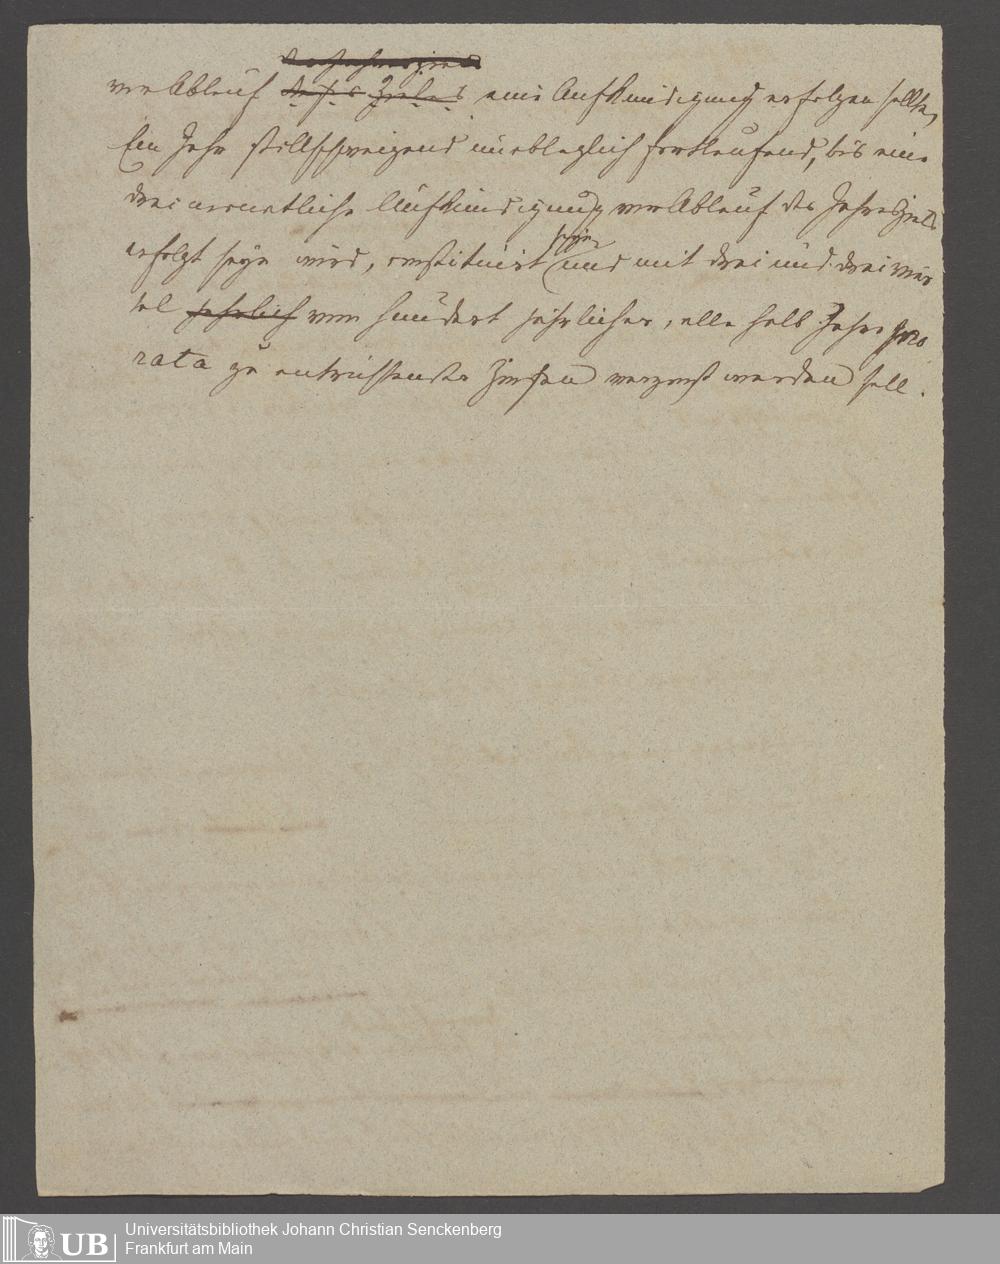 vor Ablauf dieses Zieles eine Aufkündigung erfolgen sollte,
Ein Jahr stillschweigend unableglich fortlaufend, bis eine
dreimonatliche Aufkündigung vor Ablauf des Jahresziels
seyn
erfolgt seyn wird, constituirt und mit drei und drei vier
tel jährlich vom hundert jährlicher, alle halb Jahre pro
rata zu entrichtender Zinsen verzinst werden soll.
UB
Universitätsbibliothek Johann Christian Senckenberg
Frankfurt am Main